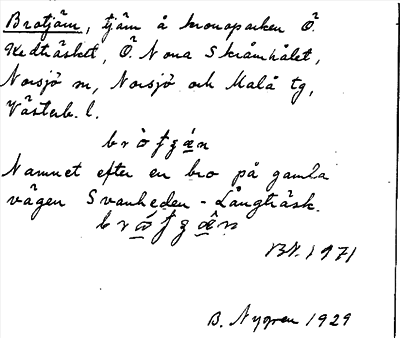 Brotjärn, tjärn å kronoparken Ö.
Kedträsket, Ö. N ona Skråmhålet,
Norsjö sn, Norsjö och Malå tg,
Västerb. l.
Namnet efter en bro på gamla
vägen Svanheden - Långträsk.
BN. 1971
B. Nygren 1929